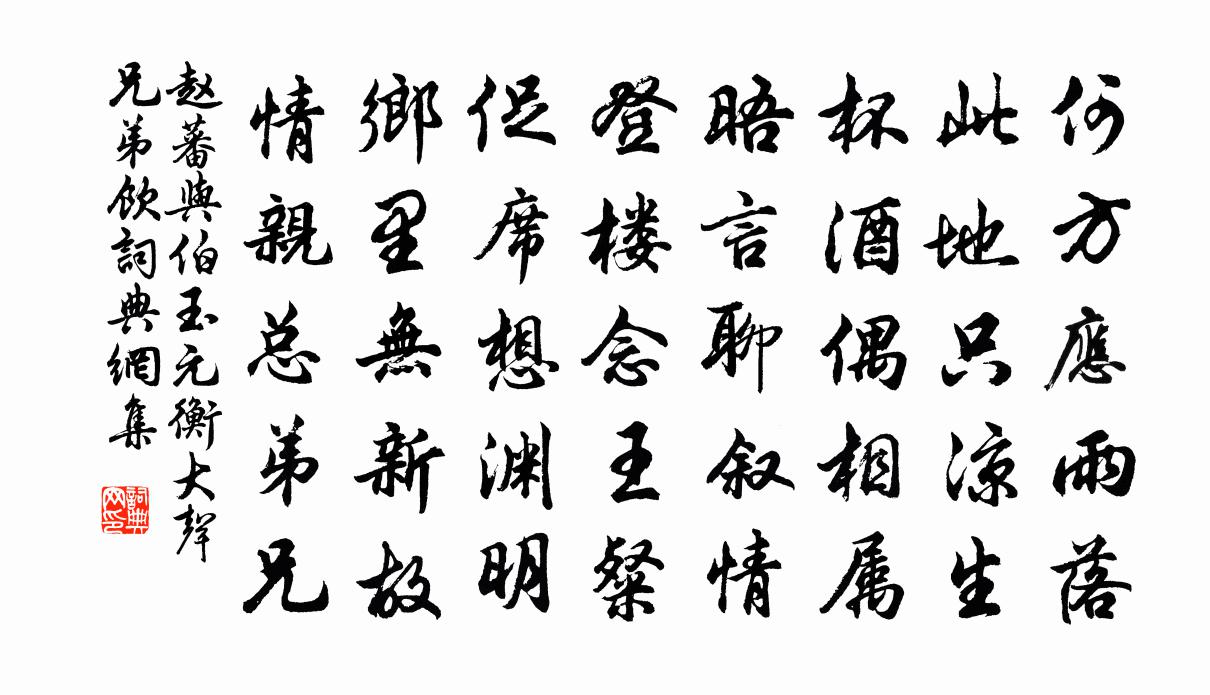 何方應雨落
此地只涼生
杯酒偶相属
晤言聊叙情
登楼念王粲
促席想渊明
鄉里無新故
情親总弟兄
赵蕃與伯玉元衡大聲
兄弟飲詞典網集
詞典网印